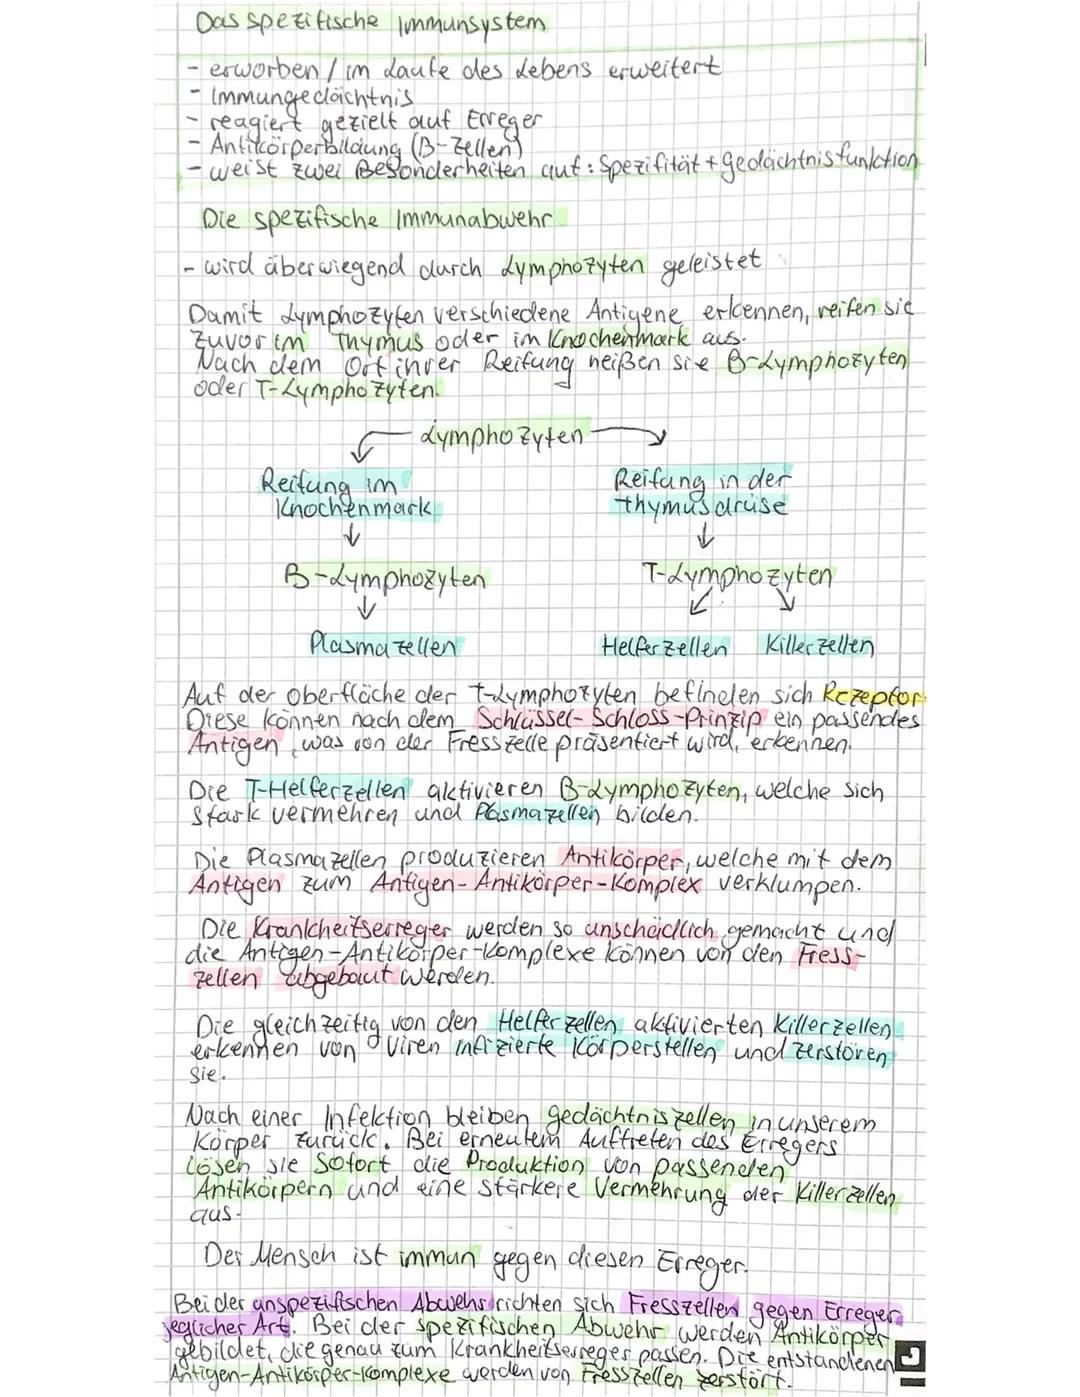 Das spezifische Immunsystem
- erworben / im Laufe des Lebens erweitert
- Immungedächtnis
- reagiert gezielt auf Erreger
- Antikörperbildung (B-Zellen)
- weist zwei Besonderheiten auf: Spezifität + Gedächtnisfunktion
Die spezifische Immunabwehr
- wird überwiegend durch Lymphozyten geleistet
Damit Lymphozyten verschiedene Antigene erkennen, reifen sie
zuvor im Thymus oder im Knochenmark aus.
Nach dem Ort ihrer Reifung heißen sie B-Lymphozyten
oder T-Lymphozyten.
Lymphozyten
Reifung im Reifung in der
Knochenmark Thymusdrüse
↓ ↓
B-Lymphozyten T-Lymphozyten
↓ ↙ ↘
Plasmazellen Helferzellen Killerzellen
Auf der Oberfläche der T-Lymphozyten befinden sich Rezeptor
Diese können nach dem Schlüssel-Schloss-Prinzip ein passendes
Antigen, was von der Fresszelle präsentiert wird, erkennen.
Die T-Helferzellen aktivieren B-Lymphozyten, welche sich
stark vermehren und Plasmazellen bilden.
Die Plasmazellen produzieren Antikörper, welche mit dem
Antigen zum Antigen-Antikörper-Komplex verklumpen.
Die Krankheitserreger werden so unschädlich gemacht und
die Antigen-Antikörper-Komplexe können von den Fress-
zellen abgebaut werden.
Die gleichzeitig von den Helferzellen aktivierten Killerzellen
erkennen von Viren infizierte Körperstellen und zerstören
sie.
Nach einer Infektion bleiben Gedächtniszellen in unserem
Körper zurück. Bei erneutem Auftreten des Erregers
lösen sie sofort die Produktion von passenden
Antikörpern und eine stärkere Vermehrung der Killerzellen
aus.
Der Mensch ist immun gegen diesen Erreger.
Bei der unspezifischen Abwehr richten sich Fresszellen gegen Erreger
jeglicher Art. Bei der spezifischen Abwehr werden Antikörper
gebildet, die genau zum Krankheitserreger passen. Die entstandenen
Antigen-Antikörper-Komplexe werden von Fresszellen zerstört.